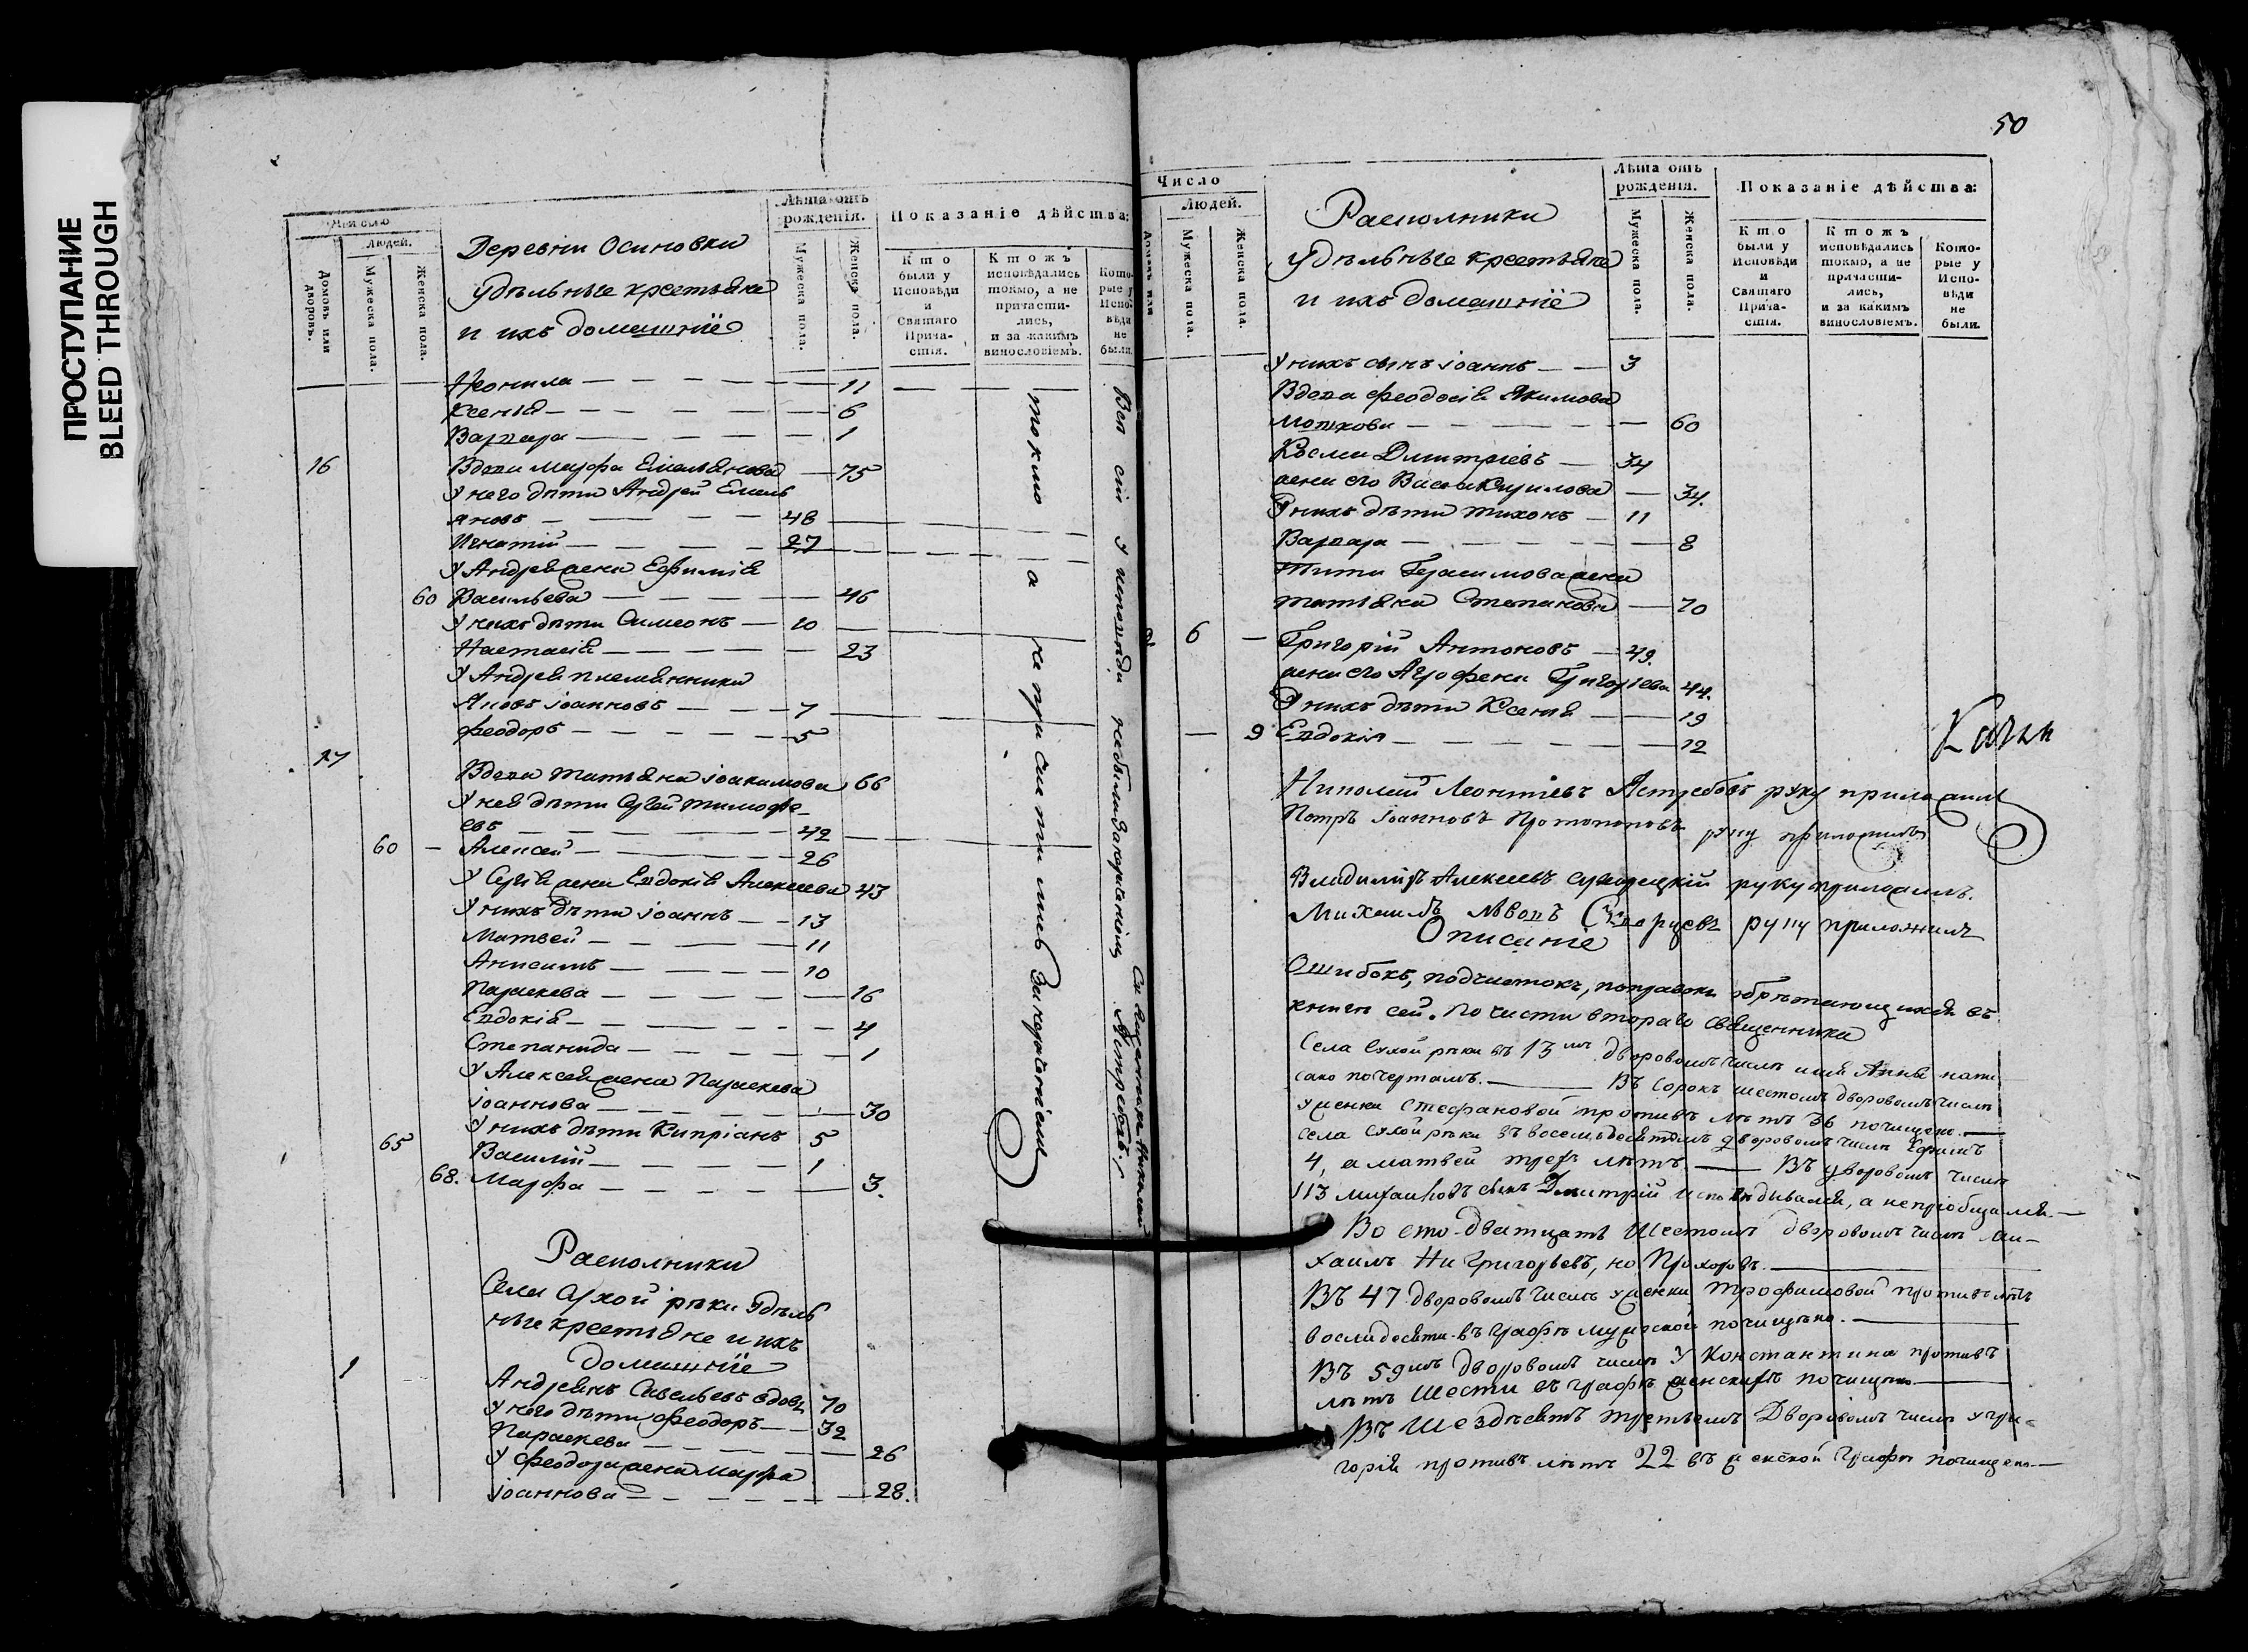 ПРОСТУПАНИЕ
BLEED THROUGH
Число
Людей.
Домовъ или дворовъ.
Мужеска пола.
Женска пола.
Деревни Осиновки
удѣльные крестьяне
и ихъ домашнїе
Лѣта отъ рожденія.
Мужеска пола.
Женска пола.
Показаніе дѣйства:
Кто были у Исповѣди и Святаго Причастія.
Ктожъ исповѣдались токмо, а не причастились, и за какимъ винословіемъ.
Которые у Исповѣди не были.
Неонила — 11
Ксенія — 6
Варвара — 1
16 Вдова Марфа Емельянова — 75
У него дѣти Андрей Емель
яновъ — 48
Игнатій — 27
У Андрея жена Ефимія
60 Васильева — 46
У нихъ дѣти Симеонъ — 20
Настасія — 23
У Андрея племянники
Яковъ Іоанновъ — 7
Феодоръ — 5
17
Вдова Татьяна Іоакимова 66
У нея дѣти Сергей Тимофе
евъ — 42
60 — Алексей — 26
У Сергія жена Евдокія Алексеева 43
У нихъ дѣти Іоаннъ — 13
Матвей — 11
Анисимъ — 10
Параскева — 16
Евдокія — 4
Степанида — 1
У Алексея жена Параскева
Іоаннова — 30
У нихъ дѣти Кипріанъ 5
65 Василій — 1
68. Марфа — 3.
токмо а не причастились за нераченіемъ
Всѣ сіи у исповѣди не были за нераченіемъ
Священникъ Николай
Ястребовъ
Раскольники
Села Сухой рѣки удѣль
ные крестьяне и ихъ
домашнїе
1
Андреянъ Савельевъ вдовъ 70
У него дѣти Феодоръ — 32
Параскева — 26
У Феодора жена Марфа
Іоаннова — 28.
50
Число
Людей.
Домовъ или
Мужеска пола.
Женска пола.
Раскольники
удѣльные крестьяне
и ихъ домашнїе
Лѣта отъ рожденія.
Мужеска пола.
Женска пола.
Показаніе дѣйства:
Кто были у Исповѣди и Святаго Причастія.
Ктожъ исповѣдались токмо, а не причастились, и за какимъ винословіемъ.
Которые у Исповѣди не были.
У нихъ сынъ Іоаннъ — 3
Вдова Феодосія Якимова
— 60
Косма Дмитріевъ — 34
жена его Васса Кирилова — 34.
У нихъ дѣти Тихонъ — 11
Варвара — 8
Тита Герасимова жена
Татьяна Степанова — 70
6 — Григорій Антоновъ — 49.
жена его Агрофена Григорьева 44.
У нихъ дѣти Ксенія — 19
— 9 Евдокія — 12
Николай Леонтіевъ Ястребовъ руку приложилъ
Петръ Іоанновъ Протопоповъ руку приложилъ
Владимиръ Алексеевъ руку приложилъ.
Михаилъ Львовъ руку приложилъ
Описаніе
Ошибокъ, подчистокъ, поправокъ обрѣтающихся въ
книгѣ сей. По части втораго священника
Села Сухой рѣки въ 13мъ дворовомъ числѣ имя Анна напи
сано по чертамъ. — Въ сорокъ шестомъ дворовомъ числѣ
у женки Стефановой противъ лѣтъ 36 почищено. —
Села Сухой рѣки въ восемьдесятомъ дворовомъ числѣ Ефимъ
4, а Матвей трехъ лѣтъ. — Въ дворовомъ числѣ
113 Михаиловъ сынъ Дмитрій исповѣдывался, а не пріобщался. —
Во сто двадцать шестомъ дворовомъ числѣ Ми-
хаилъ не Григорьевъ, но Прохоровъ. —
Въ 47 дворовомъ числѣ у женки Трофимовой противъ лѣтъ
восмидесяти въ графѣ мужеской почищено. —
Въ 59мъ дворовомъ числѣ у Константина противъ
лѣтъ шести въ графѣ женской почищено —
Въ шездесятъ третьемъ дворовомъ числѣ у Гри-
горія противъ лѣтъ 22 въ женской графѣ почищено. —